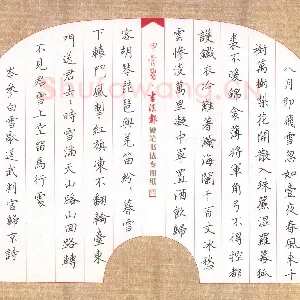 八月即飛雪忽如一夜春風來千
樹萬樹梨花開散入珠簾濕羅幕狐
裘不暖錦衾薄將軍角弓不得控都
護鐵衣冷難著瀚海闌干百丈冰愁
雲慘淡萬里凝中軍置酒飲歸
書法報
硬筆書法專用紙
客胡琴琵琶與羌笛紛々暮雪
下轅門風掣紅旗凍不翻輪臺東
門送君去々時雪滿天山路山回路轉
不見君雪上空留馬行處
岑參白雪歌送武判官歸京詩